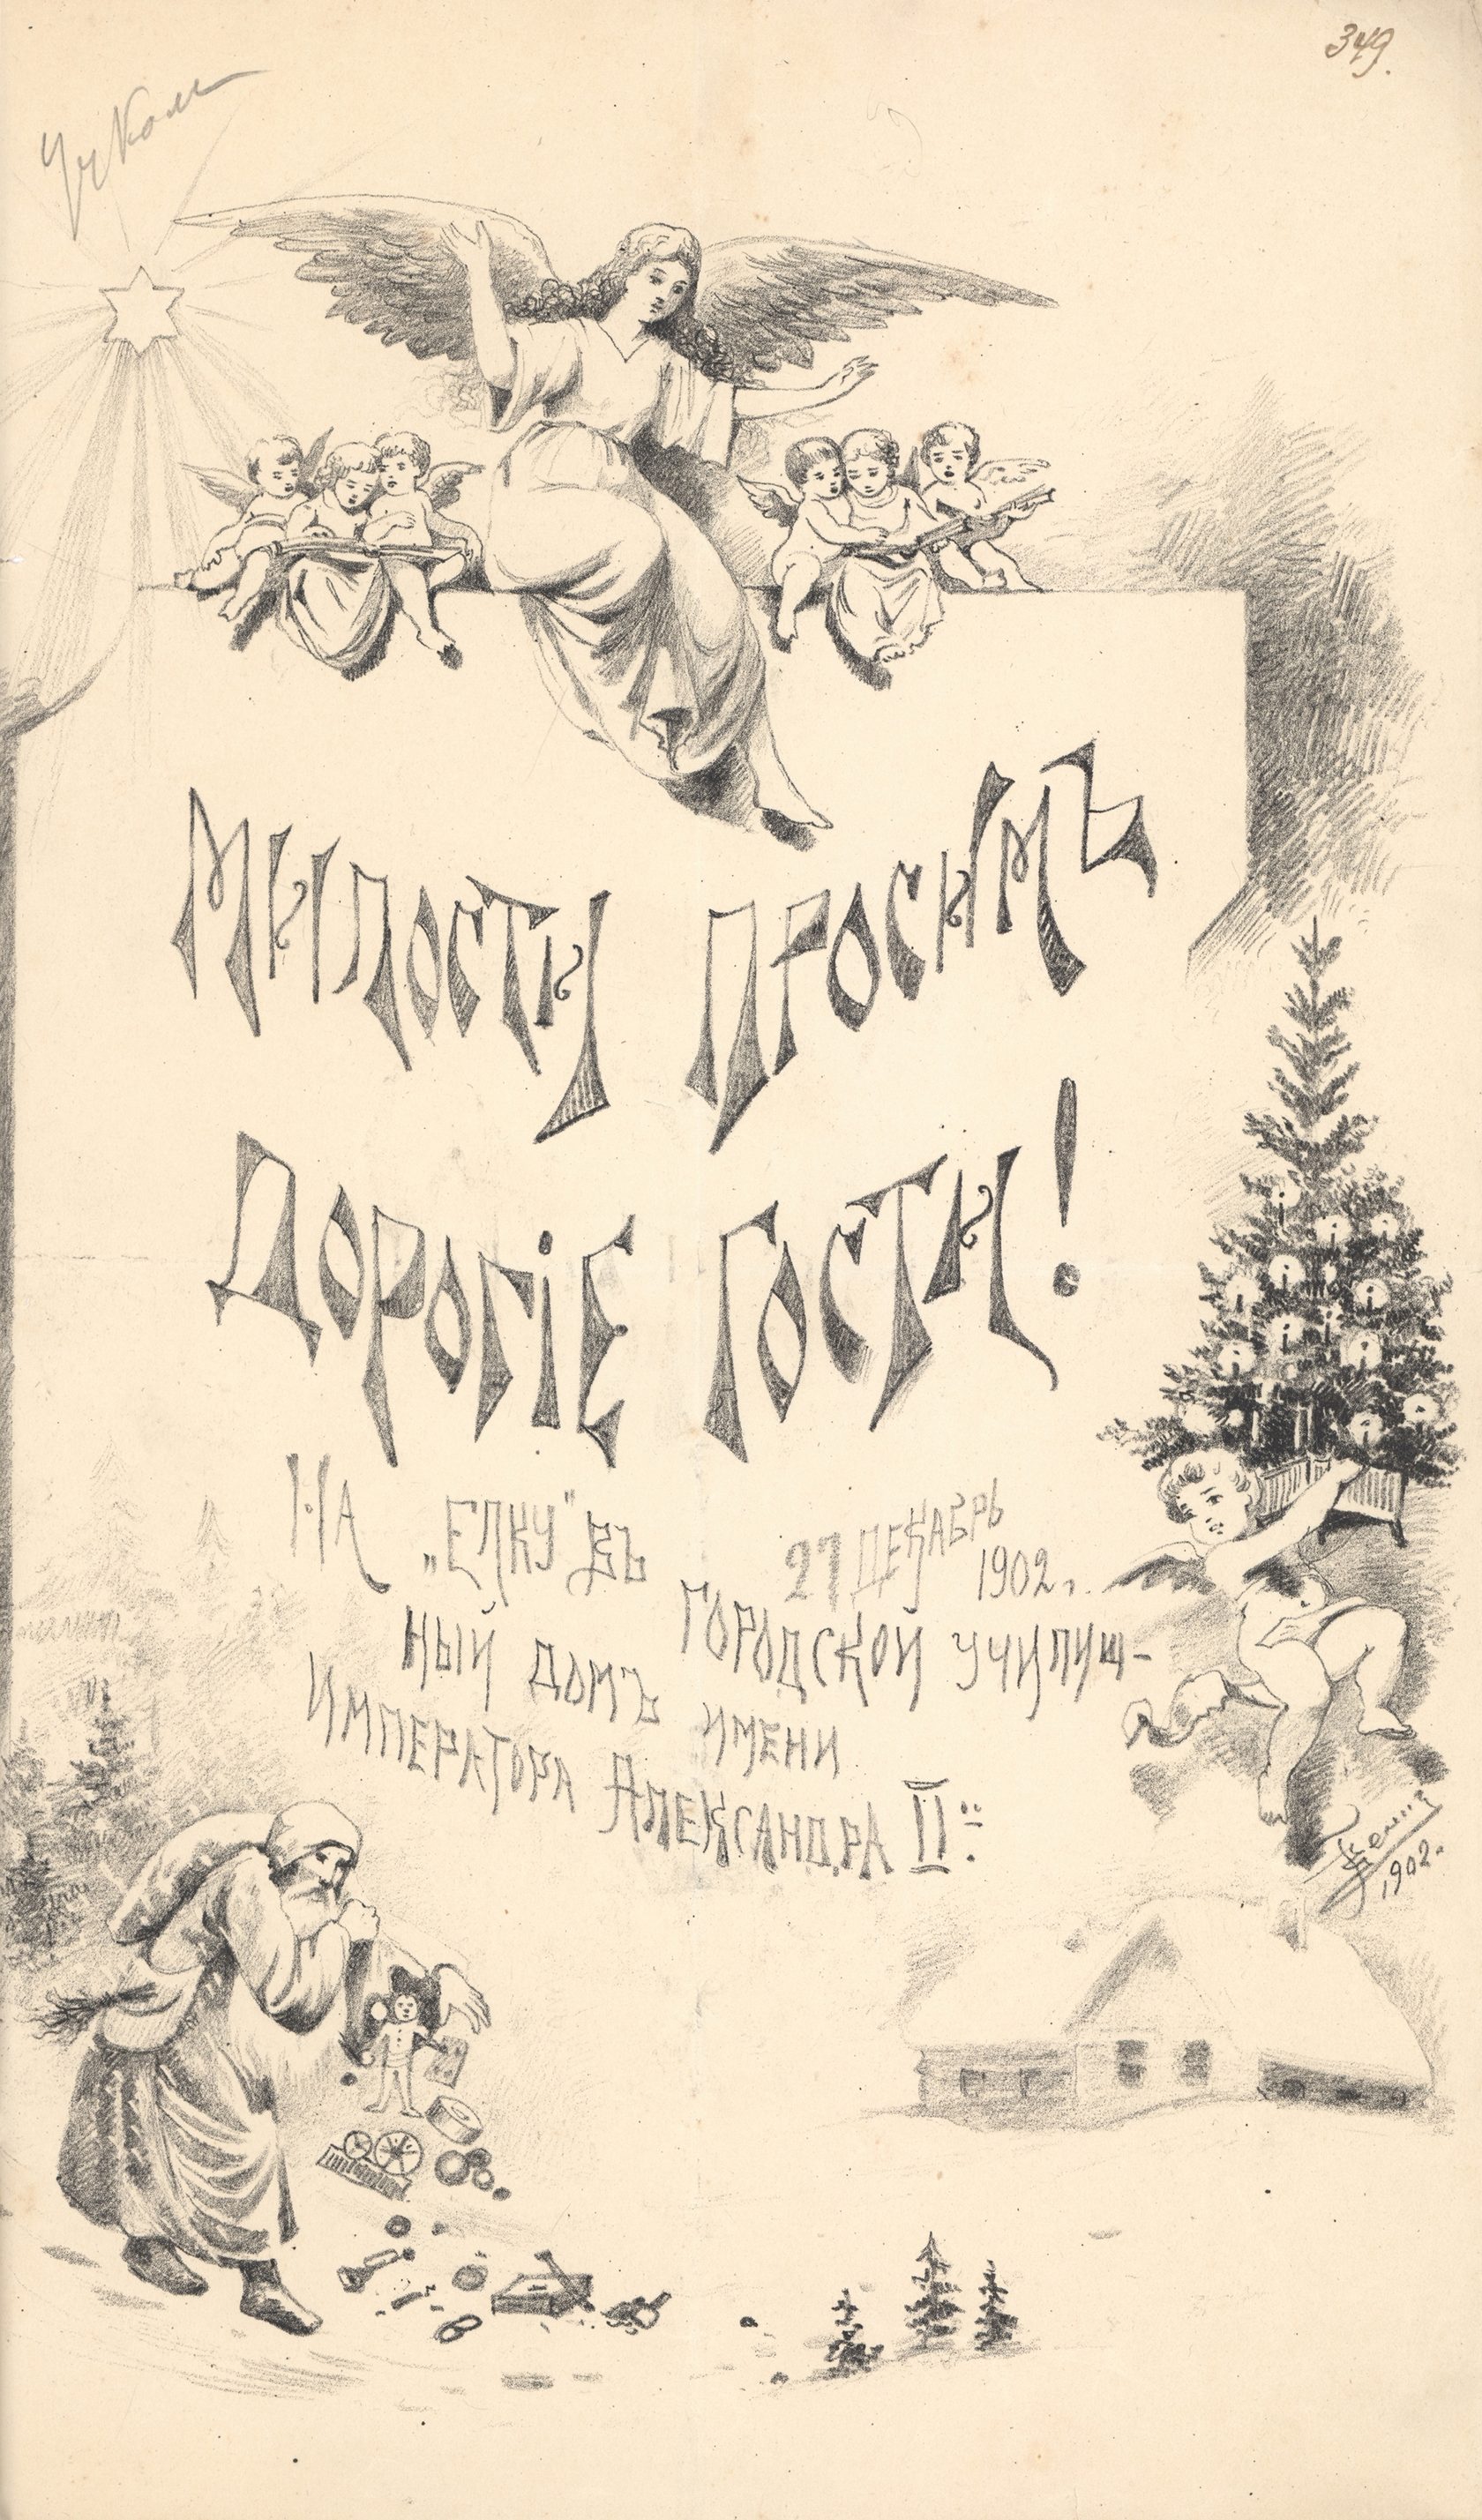 349.
МИЛОСТИ ПРОСИМЪ
ДОРОГІЕ ГОСТИ!
НА „ЕЛКУ" ВЪ 27 ДЕКАБРЬ 1902.
ГОРОДСКОЙ УЧИЛИЩ-
НЫЙ ДОМЪ ИМЕНИ
ИМПЕРАТОРА АЛЕКСАНДРА II:
1902.